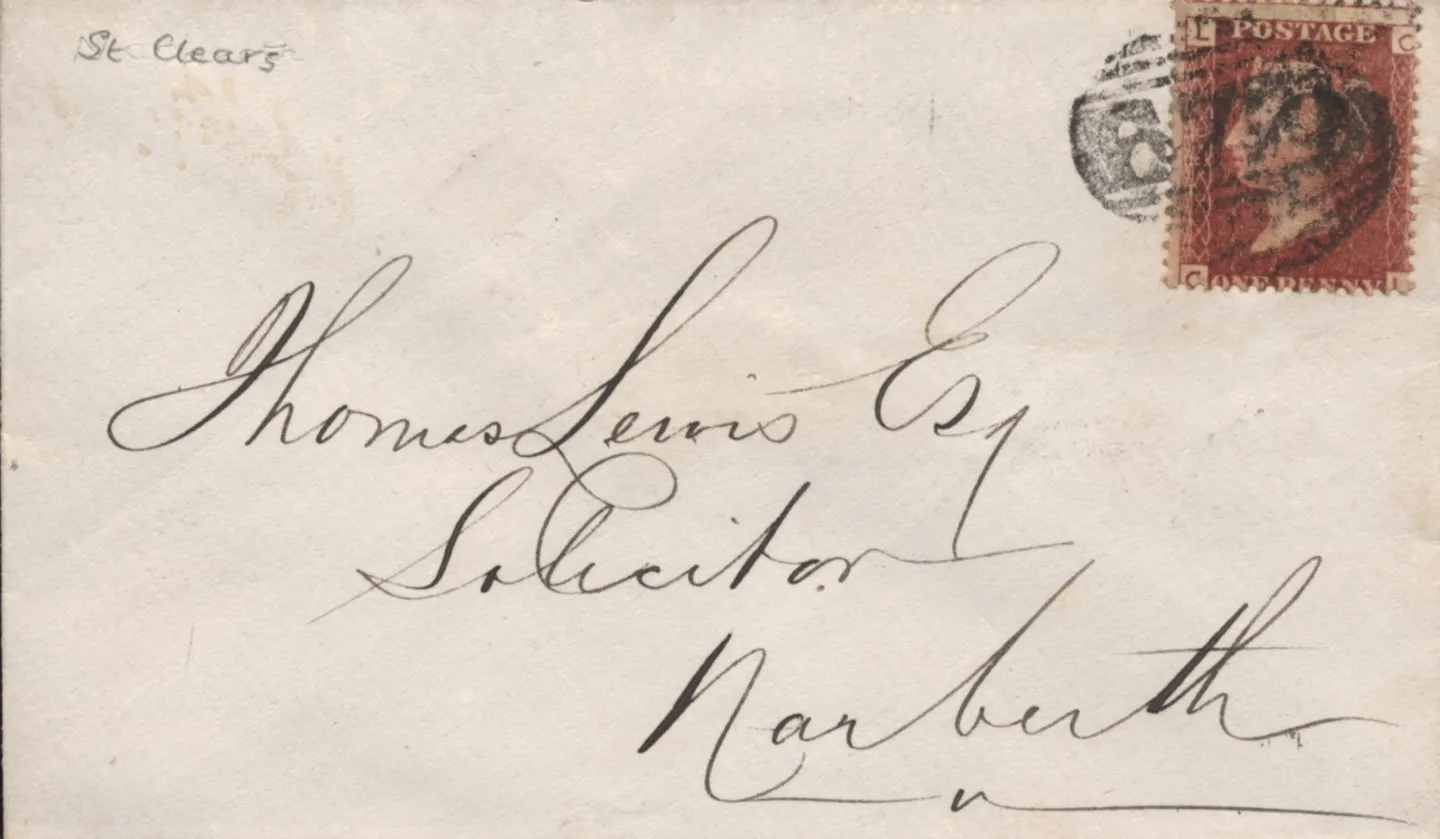 St Clears
L POSTAGE C
C ONE PENNY L
Thomas Lewis Esq
Solicitor
Narberth